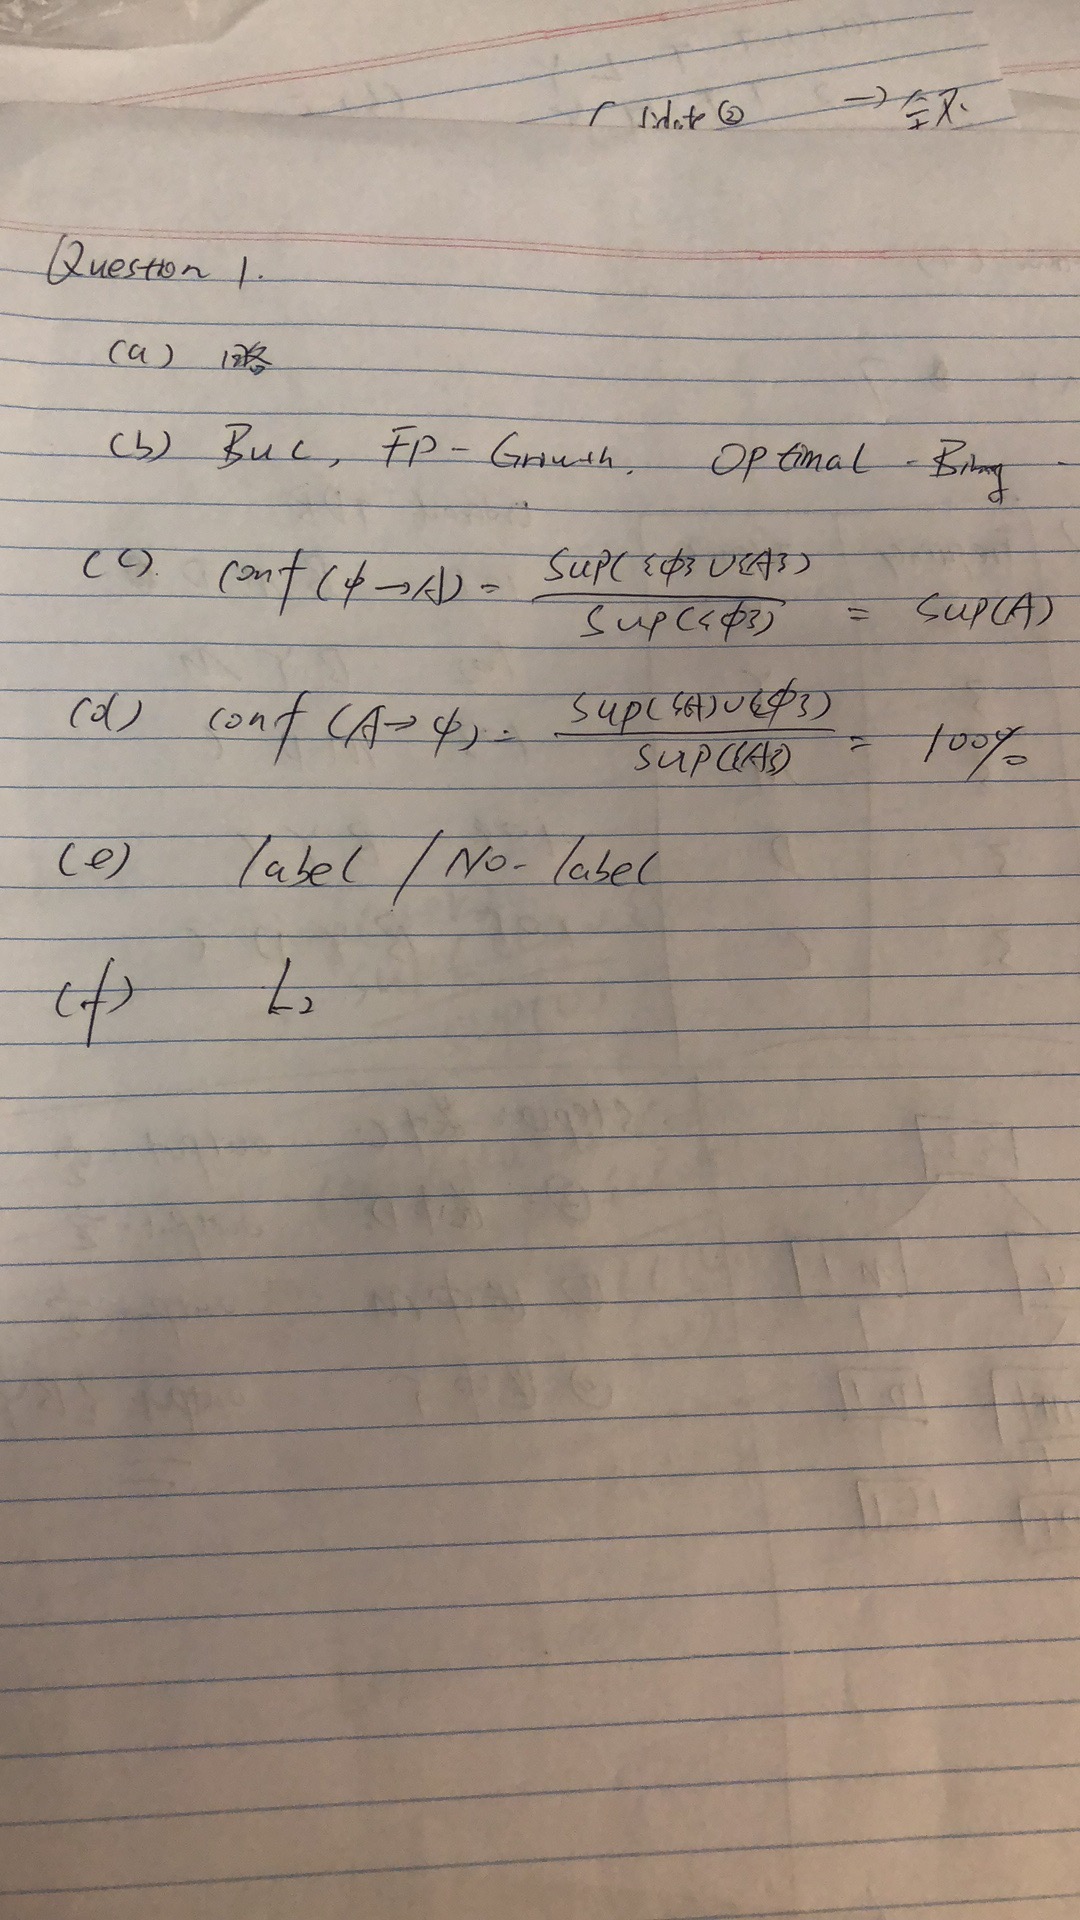 →
Question 1.
(a) 略
(b) Buc, FP-Growth. Optimal-Bing
(c). conf(ϕ→A) = sup({ϕ}∪{A}) / sup({ϕ}) = sup(A)
(d) conf(A→ϕ) = sup({A}∪{ϕ}) / sup({A}) = 100%
(e) label / No-label
(f) L2